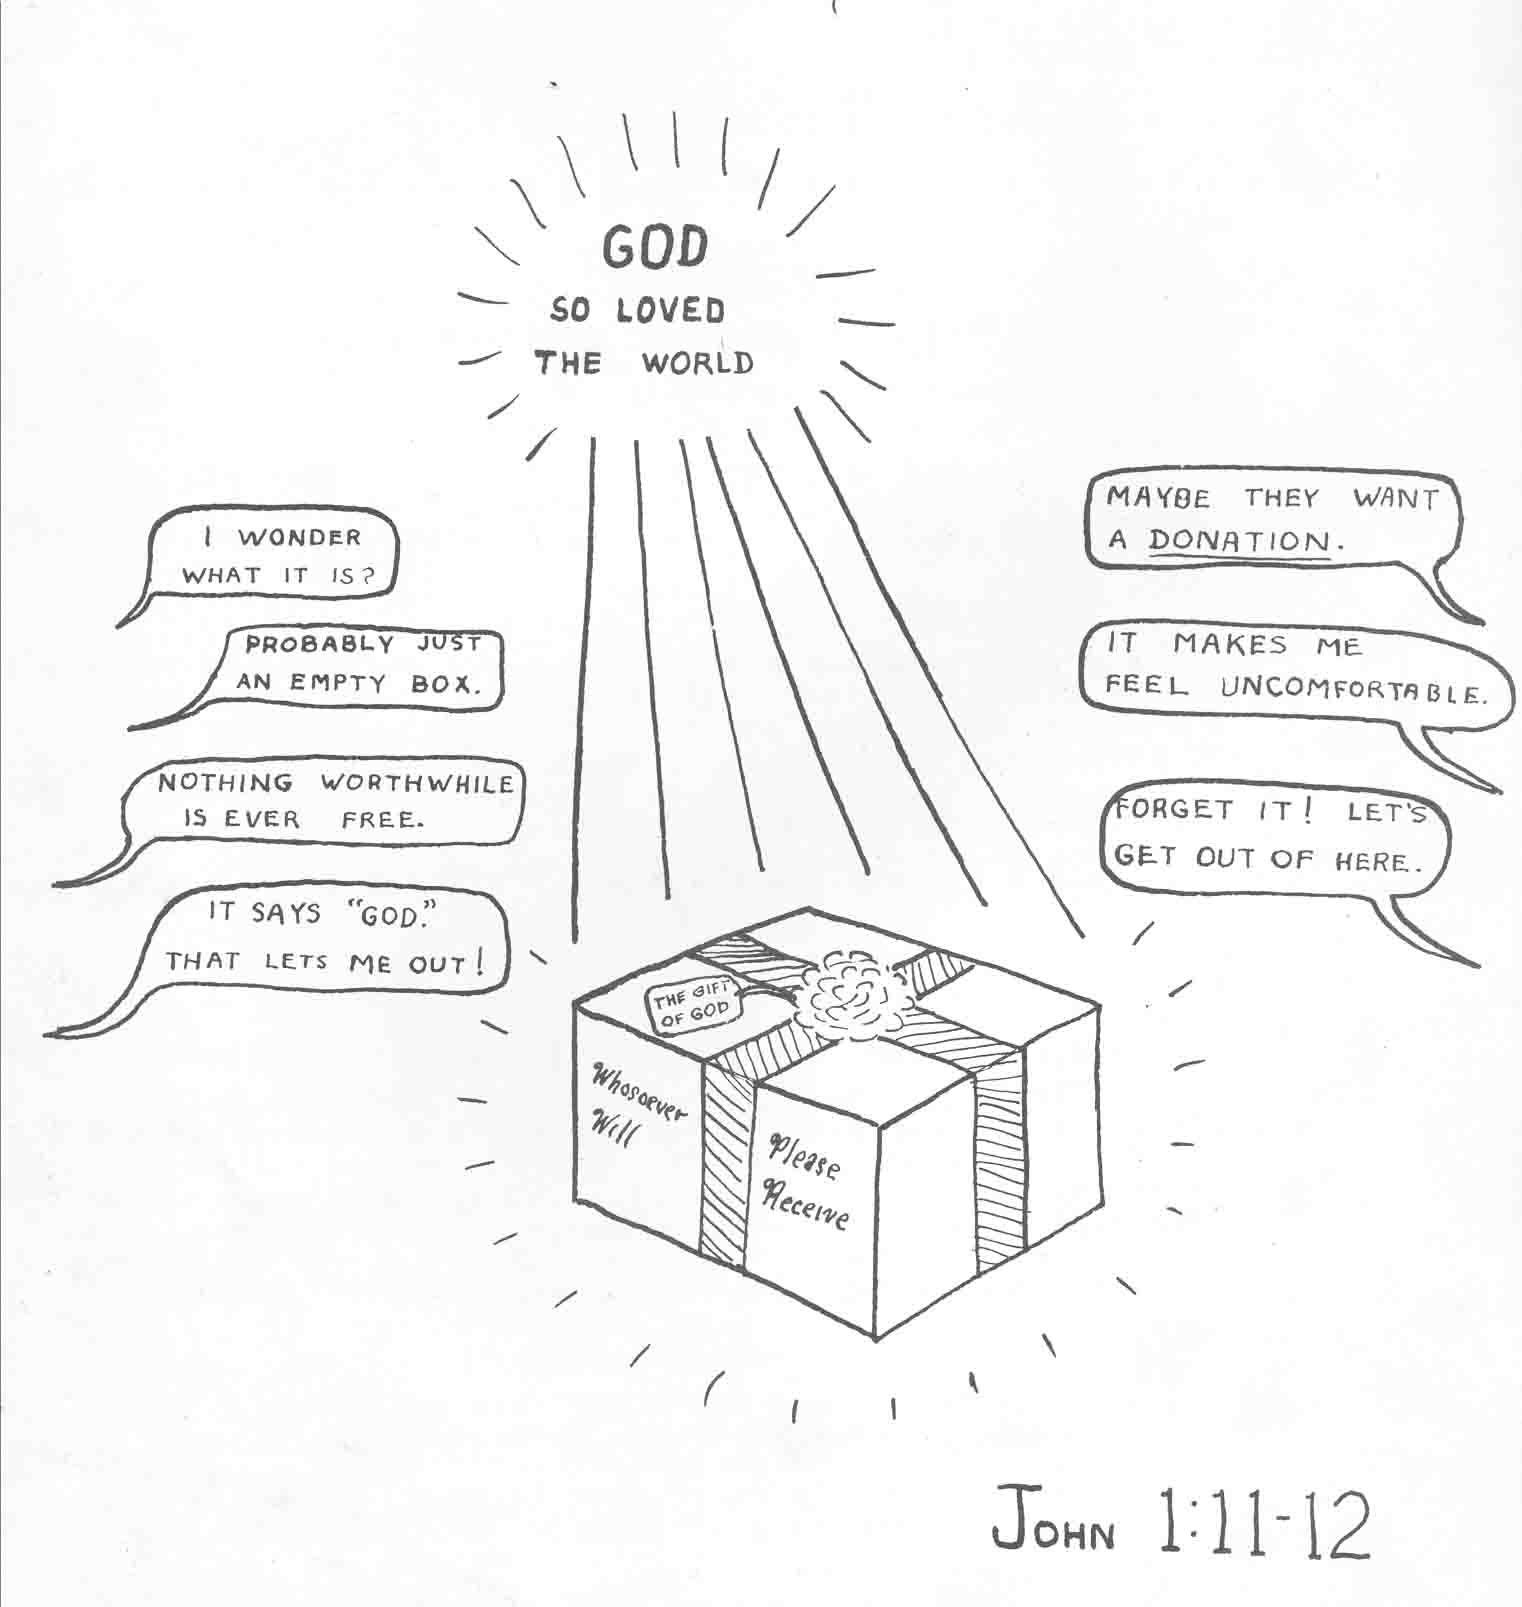 GOD
SO LOVED
THE WORLD
I WONDER
WHAT IT IS?
PROBABLY JUST
AN EMPTY BOX.
NOTHING WORTHWHILE
IS EVER FREE.
IT SAYS "GOD."
THAT LETS ME OUT!
MAYBE THEY WANT
A DONATION.
IT MAKES ME
FEEL UNCOMFORTABLE.
FORGET IT! LET'S
GET OUT OF HERE.
THE GIFT
OF GOD
Whosoever
Will
Please
Receive
JOHN 1:11-12